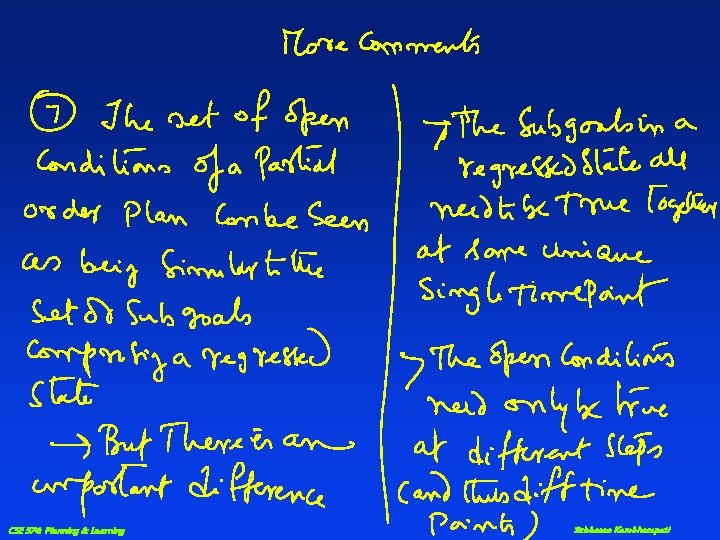 More Comments
⑦ The set of open
Conditions of a Partial
order plan can be seen
as being similar to the
set of subgoals
comprising a regressed
state
→ But There is an
important difference
→ The subgoals in a
regressed state all
need to be true Together
at some unique
single timepoint
→ The open Conditions
need only be true
at different steps
(and thus diff time
Points)
CSE 574: Planning & Learning
Subbarao Kambhampati